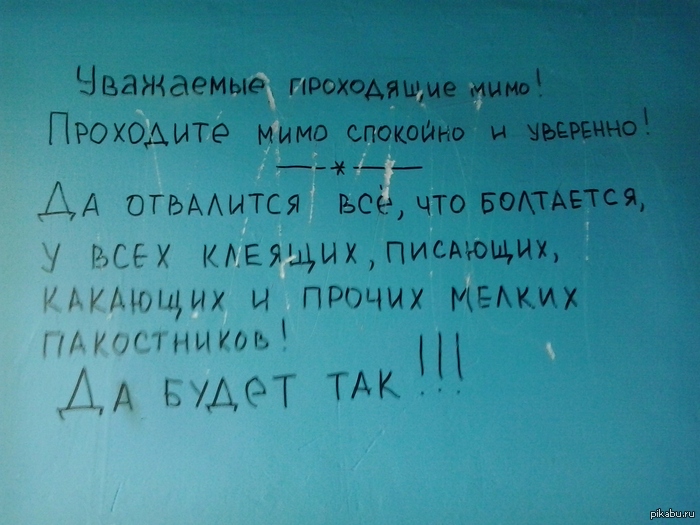 Уважаемые проходящие мимо!
Проходите мимо спокойно и уверенно!
—*—
Да отвалится всё, что болтается,
у всех клеящих, писающих,
какающих и прочих мелких
пакостников!
Да будет так!!!
pikabu.ru